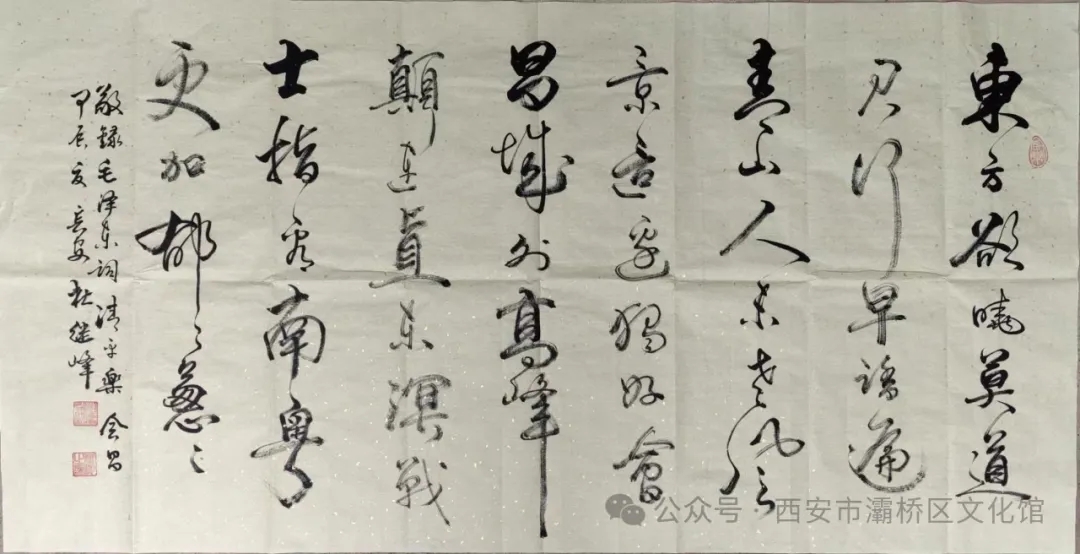 東方欲曉莫道
君行早踏遍
青山人未老風
景這邊獨好會
昌城外髙峯
顛連直东溟戰
士指看南粤
更加郁々葱々
敬録毛泽东詞清平樂会昌
甲辰夏长安杜继峰
公众号·西安市灞桥区文化馆